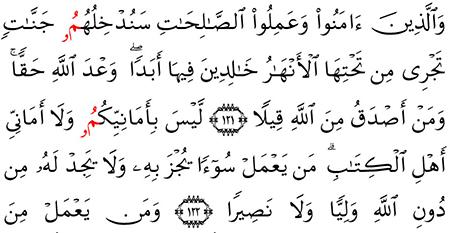 وَالَّذِينَ ءَامَنُوا۟ وَعَمِلُوا۟ الصَّٰلِحَٰتِ سَنُدْخِلُهُمُۥ جَنَّٰتٍ
تَجْرِى مِن تَحْتِهَا ٱلْأَنْهَٰرُ خَٰلِدِينَ فِيهَا أَبَدًاۖ وَعْدَ ٱللَّهِ حَقًّاۚ
وَمَنْ أَصْدَقُ مِنَ ٱللَّهِ قِيلًا ١٢١ لَّيْسَ بِأَمَانِيِّكُمُۥ وَلَا أَمَانِىِّ
أَهْلِ ٱلْكِتَٰبِۗ مَن يَعْمَلْ سُوٓءًا يُجْزَ بِهِۦ وَلَا يَجِدْ لَهُۥ مِن
دُونِ ٱللَّهِ وَلِيًّا وَلَا نَصِيرًا ١٢٢ وَمَن يَعْمَلْ مِنَ